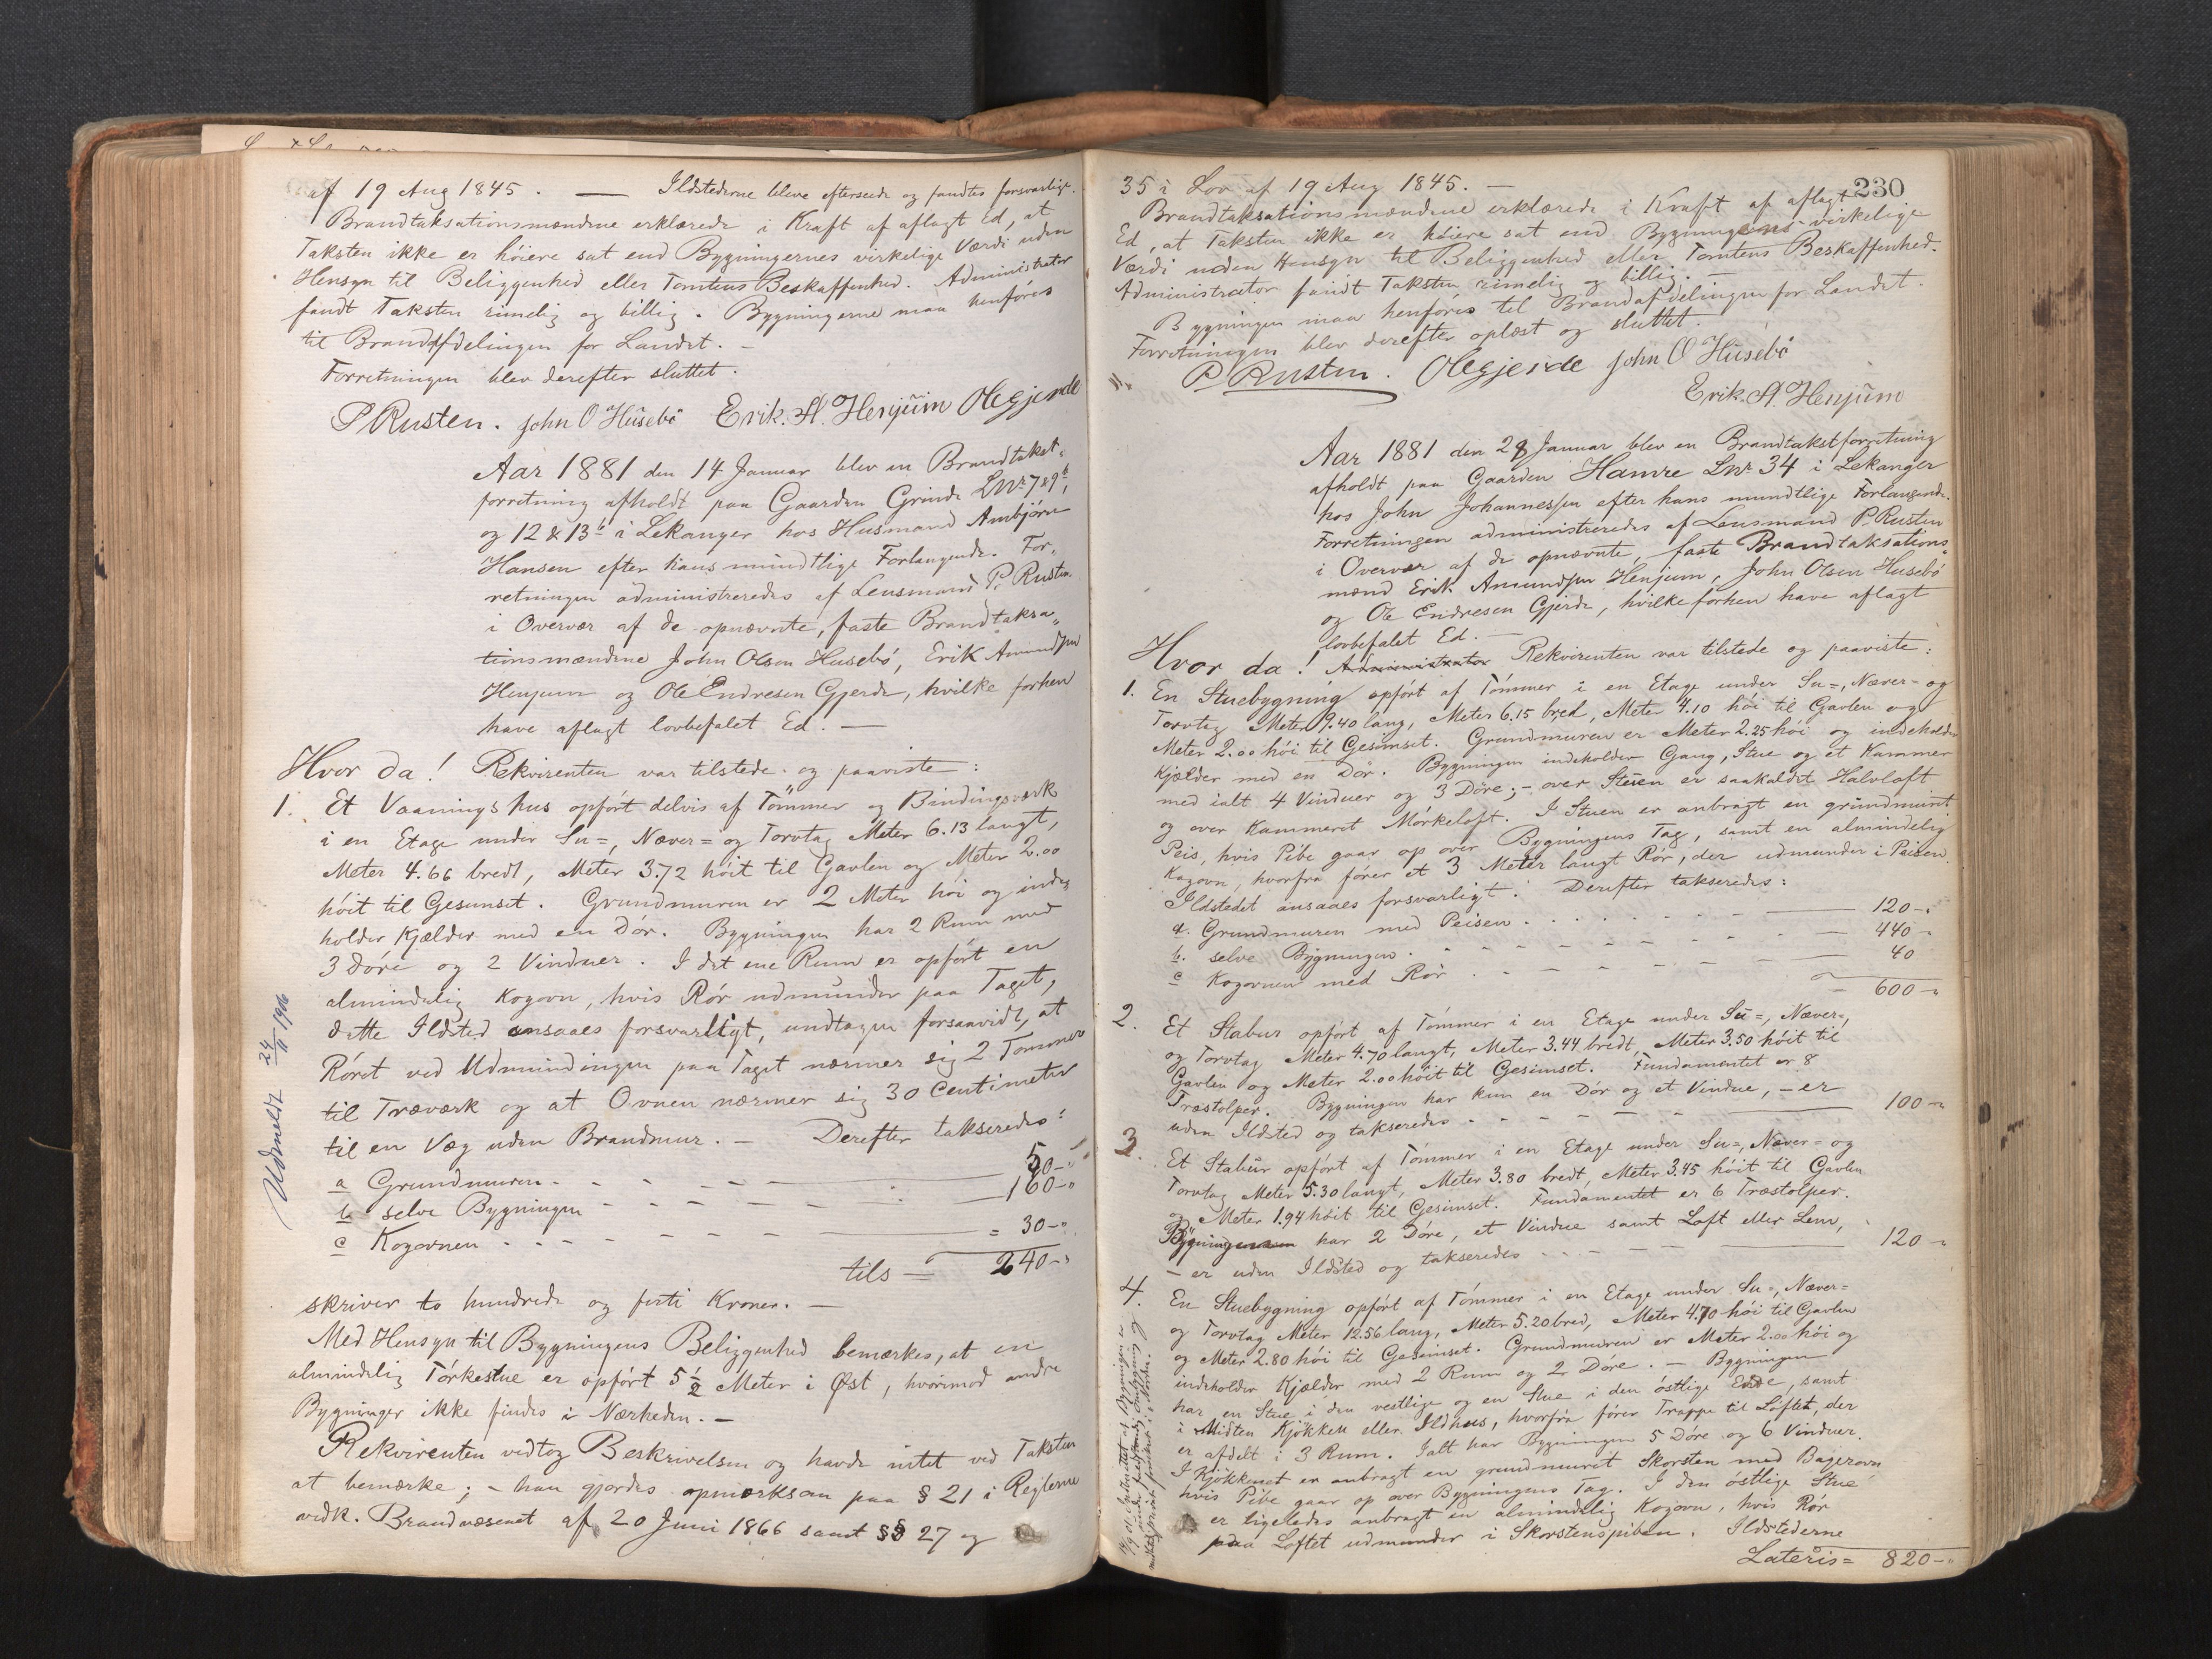 af 19 Aug 1845. — Ildstederne bleve efterseede og fandtes forsvarlige.
Brandtaksationsmændene erklærede i Kraft af aflagt Ed, at
Taksten ikke er höiere sat end Bygningernes virkelige Værdi uden
Hensyn til Beliggenhed eller Tomtens Beskaffenhed. Administrator
fandt Taksten rimelig og billig. Bygningerne maa henföres
til Brandafdelingen for Landet. —
Forretningen blev derefter sluttet.
P Rusten. John O Husebö Erik. A. Henjum Ole Gjerde
Aar 1881 den 14 Januar blev en Brandtakst-
forretning afholdt paa Gaarden Grinde LNr 7 & 9b,
og 12 & 13b i Lekanger hos Husmand Ambjörn
Hansen efter hans mundtlige Forlangende. For-
retningen administreredes af Lensmand P. Rusten
i Overvær af de opnævnte, faste Brandtaksa-
tionsmændene John Olsen Husebö, Erik Amundsen
Henjum og Ole Endresen Gjerde, hvilke forhen
have aflagt lovbefalet Ed. —
Hvor da! Rekvirenten var tilstede og paaviste:
1. Et Vaaningshus opfört delvis af Tömmer og Bindingsværk
i en Etage under Su=, Næver= og Torvtag Meter 6.13 langt,
Meter 4.66 bredt, Meter 3.72 höit til Gavlen og Meter 2.00
höit til Gesimset. Grundmuren er 2 Meter höi og inde-
holder Kjælder med en Dör. Bygningen har 2 Rum med
3 Döre og 2 Vinduer. I det ene Rum er opfört en
almindelig Kogovn, hvis Rör udmunder paa Taget,
dette Ildsted ansaaes forsvarligt, undtagen forsaavidt, at
Röret ved Udmundingen paa Taget nærmer sig 2 Tommer
til Træværk og at Ovnen nærmer sig 30 Centimeter
til en Væg uden Brandmur. — Derefter takseredes:
a Grundmuren 50-"
b selve Bygningen 160-"
c Kogovnen = 30-"
tils = 240-"
skriver to hundrede og firti Kroner. —
Med Hensyn til Bygningens Beliggenhed bemærkes, at en
almindelig Törkestue er opfört 5 1/2 Meter i Øst, hvorimod andre
Bygninger ikke findes i Nærheden. —
Rekvirenten vedtog Beskrivelsen og havde intet ved Taksten
at bemærke; — han gjordes opmærksom paa § 21 i Reglerne
vedk. Brandvæsenet af 20 Juni 1866 samt §§ 27 og
Udmeldt 24/11 1906
230
35 i Lov af 19 Aug 1845. —
Brandtaksationsmændene erklærede i Kraft af aflagt
Ed, at Taksten ikke er höiere sat end Bygningens virkelige
Værdi uden Hensyn til Beliggenhed eller Tomtens Beskaffenhed.
Administrator fandt Taksten rimelig og billig. —
Bygningen maa henföres til Brandafdelingen for Landet.
Forretningen blev derefter oplæst og sluttet.
P Rusten. Ole Gjerde John O Husebö
Erik. A. Henjum
Aar 1881 den 28 Januar blev en Brandtakstforretning
afholdt paa Gaarden Hamre LNr 34 i Lekanger
hos John Johannessen efter hans mundtlige Forlangende.
Forretningen administreredes af Lensmand P. Rusten
i Overvær af de opnævnte, faste Brandtaksations-
mænd Erik Amundsen Henjum, John Olsen Husebö
og Ole Endresen Gjerde, hvilke forhen have aflagt
lovbefalet Ed. —
Hvor da! Administrator Rekvirenten var tilstede og paaviste:
1. En Stuebygning opfört af Tömmer i en Etage under Su=, Næver= og
Torvtag Meter 9.40 lang, Meter 6.15 bred, Meter 4.10 höi til Gavlen og
Meter 2.00 höi til Gesimset. Grundmuren er Meter 2.25 höi og indeholder
Kjælder med en Dör. Bygningen indeholder Gang, Stue og et Kammer
med ialt 4 Vinduer og 3 Döre; — over Stuen er saakaldet Halvloft
og over Kammeret Mörkeloft. I Stuen er anbragt en grundmuret
Peis, hvis Pibe gaar op over Bygningens Tag, samt en almindelig
Kogovn, hvorfra förer et 3 Meter langt Rör, der udmunder i Peisen.
Ildstedet ansaaes forsvarligt. Derefter takseredes:
a. Grundmuren med Peisen 120-"
b. selve Bygningen 440-"
c Kogovnen med Rör 40
600-"
2. Et Stabur opfört af Tömmer i en Etage under Su=, Næver=,
og Torvtag Meter 4.70 langt, Meter 3.44 bredt, Meter 3.50 höit til
Gavlen og Meter 2.00 höit til Gesimset. Fundamentet er 8
Træstolper. Bygningen har kun en Dör og et Vindue, — er
uden Ildsted og takseredes 100-"
3. Et Stabur opfört af Tömmer i en Etage under Su=, Næver= og
Torvtag Meter 5.30 langt, Meter 3.80 bredt, Meter 3.45 höit til Gavlen
og Meter 1.94 höit til Gesimset. Fundamentet er 6 Træstolper.
Bygningen har 2 Döre, et Vindue samt Loft eller Lem,
— er uden Ildsted og takseredes 120-"
4. En Stuebygning opfört af Tömmer i en Etage under Su=, Næver=
og Torvtag Meter 12.56 lang, Meter 5.20 bred, Meter 4.70 höi til Gavlen
og Meter 2.80 höi til Gesimset. Grundmuren er Meter 2.00 höi og
indeholder Kjælder med 2 Rum og 2 Döre. — Bygningen
har en Stue i den vestlige og en Stue i den östlige Ende, samt
i Midten Kjökken eller Ildhus, hvorfra förer Trappe til Loftet, der
er afdelt i 3 Rum. Ialt har Bygningen 5 Döre og 6 Vinduer.
I Kjökkenet er anbragt en grundmuret Skorsten med Bagerovn
hvis Pibe gaar op over Bygningens Tag. I den östlige Stue
er ligeledes anbragt en almindelig Kogovn, hvis Rör
paa Loftet udmunder i Skorstenspiben. Ildstederne
Lateris = 820-"